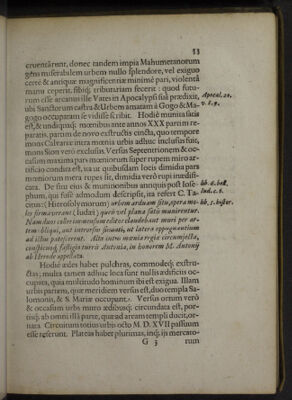 53
cruentârent, donec tandem impia Mahumetanorum
gens miserabilem urbem nullo splendore, vel exiguo
certè & antiquæ magnificentiæ minimè pari, violentâ
manu ceperit, sibiq́; tributariam fecerit: quod futu-
rum esse arcanus ille Vates in Apocalypsi suâ prædixit,
ubi Sanctorum castra & Urbem amatam à Gogo & Ma-
gogo occuparam se vidisse scribit. Hodiè munita satis
est, & undiquaq́; mœnibus ante annos XXX partim re-
paratis, partim de novo exstructis cincta, quo tempore
mons Calvariæ intra mœnia urbis adhuc inclusus fuit,
mons Sion verò exclusus. Versus Septentrionem & oc-
casum maxima pars mœniorum super rupem miro ar-
tificio condita est, ita ut quibusdam locis dimidia pars
mœniorum mera rupes sit, dimidia verò rupi inædifi-
cata. De situ ejus & munitionibus antiquis post Jose-
phum, qui fusè admodum descripsit, ita refert C. Ta-
citus: (Hierosolymorum) urbem arduam situ, opera mo-
les firmaverant (Iudæi) queis vel plana satis munirentur.
Nam duos colles immensum editos claudebant muri per ar-
tem obliqui, aut introrsus sinuati, ut latera oppugnantium
ad ictus patescerent. Alia intus mœnia regiæ circumjecta,
conspicuoq́; fastigio turris Antonia, in honorem M. Antonij
ab Herode appellata.
Hodiè ædes habet pulchras, commodeq́; exstru-
ctas; multa tamen adhuc loca sunt nullis ædificiis oc-
cupata, quia multitudo hominum ibi est exigua. Illam
urbis partem, quæ meridiem versus est, duo templa Sa-
lomonis, & S. Mariæ occupant. Versus ortum verò
& occasum urbs ædibus muroq́; circumdata est, por-
tisq́; ab omni illâ parte, quæ ad aream templi ducit, or-
nata. Circuitum totius urbis octo M. D. XVII passuum
esse asserunt. Plateas habet plurimas, inq́; ijs mercato-
G 3
rum
Apocal. 20.
v. 8. 9.
lib. 6. bell.
Iud. c. 6.
lib. 5. histor.